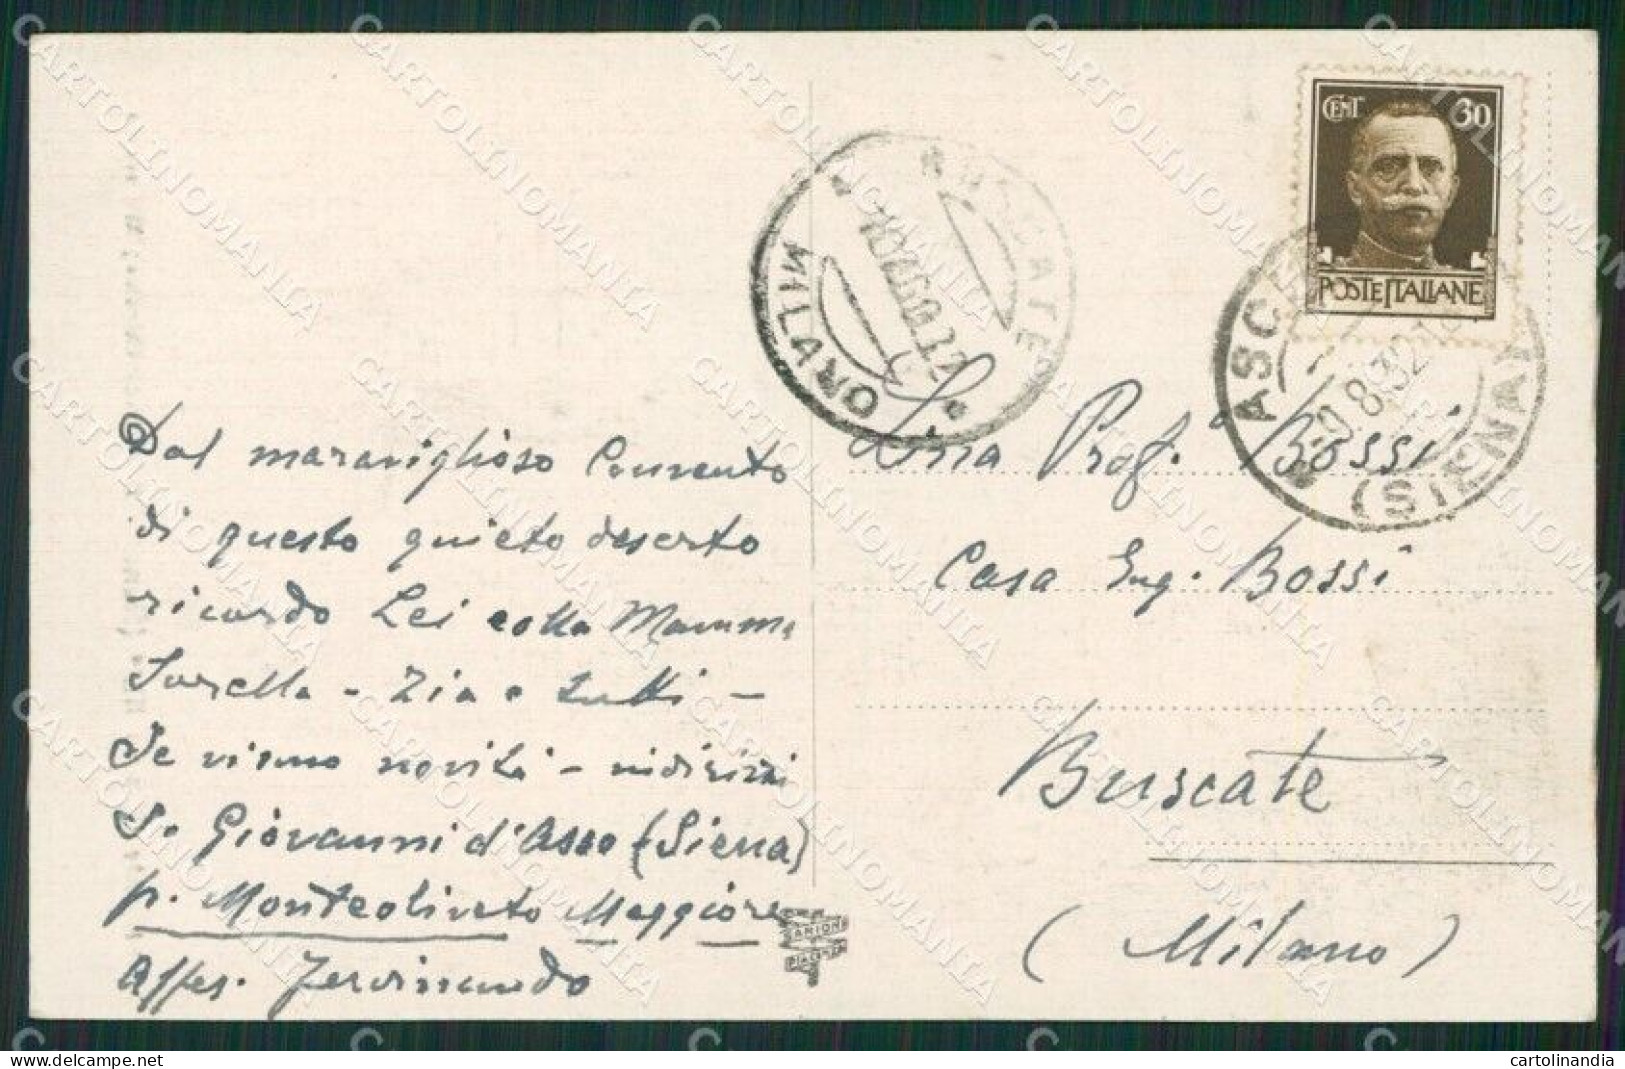 CENT 30
POSTE ITALIANE
BUSCATE
MILANO
ASC
8.32
(SIENA)
Dal maraviglioso Convento
di questo quieto deserto
ricordo Lei colla Mamma
Sorella - Zia e tutti -
Se vi sono novità - indirizzi
S. Giovanni d'Asso (Siena)
p. Monteoliveto Maggiore
Affes. Ferdinando
Prof. Bossi
Casa Ing. Bossi
Buscate
(Milano)
CARTOLINOMANIA
cartolinandia